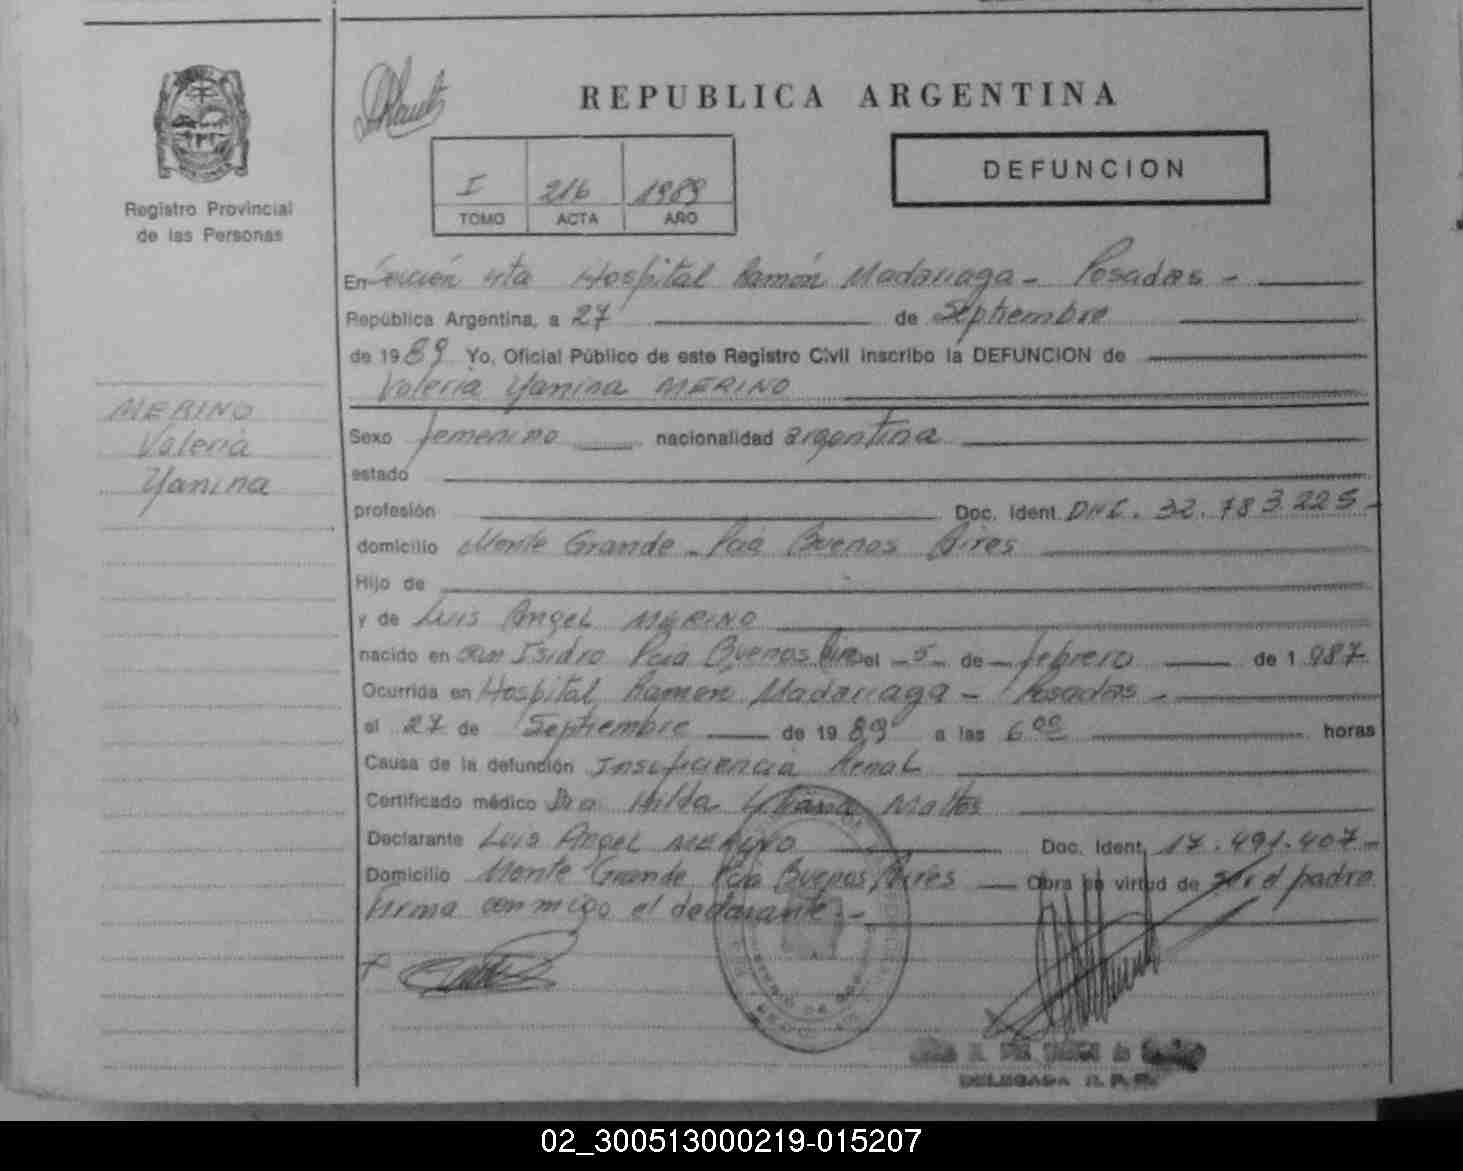 REPUBLICA ARGENTINA
DEFUNCION
I 216 1989
TOMO ACTA AÑO
Registro Provincial
de las Personas
En Sección 4ta Hospital Ramón Madariaga - Posadas -
República Argentina, a 27 de Septiembre
de 1989 Yo, Oficial Público de este Registro Civil inscribo la DEFUNCION de
Valeria Yanina MERINO
MERINO
Valeria
Yanina
Sexo femenino nacionalidad argentina
estado
profesión Doc. Ident. DNI. 32.783.225-
domicilio Monte Grande - Pcia Buenos Aires
Hijo de
y de Luis Angel MERINO
nacido en San Isidro Pcia Buenos Aires el 5 de febrero de 1.987
Ocurrida en Hospital Ramón Madariaga - Posadas -
el 27 de Septiembre de 1989 a las 6 00 horas
Causa de la defunción Insuficiencia Renal
Certificado médico Dra. Hilda Liliana Mattos
Declarante Luis Angel MERINO Doc. Ident. 17.491.407-
Domicilio Monte Grande Pcia Buenos Aires Obra en virtud de ser el padre
Firma conmigo el declarante.-
DELEGADA R.P.P.
02_300513000219-015207